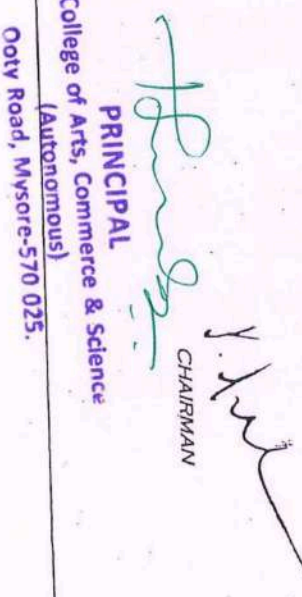 CHAIRMAN
PRINCIPAL
College of Arts, Commerce & Science
(Autonomous)
Ooty Road, Mysore-570 025.